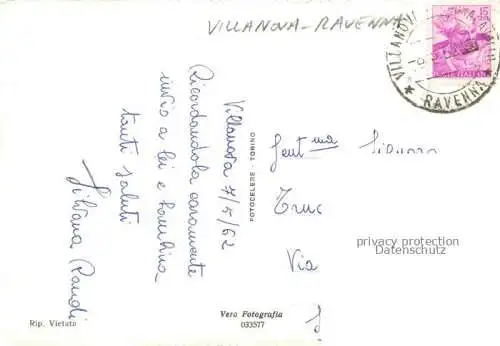 VILLANOVA - RAVENNA
VILLANOVA
* RAVENNA *
15
ITALIANE
Villanova 7/5/62
Ricordandola caramente
invio a lei e bambina
tanti saluti
Silvana Randi
FOTOCELERE - TORINO
Gent ma Signora
Truc
Via
privacy protection
Datenschutz
Rip. Vietata
Vera Fotografia
033577